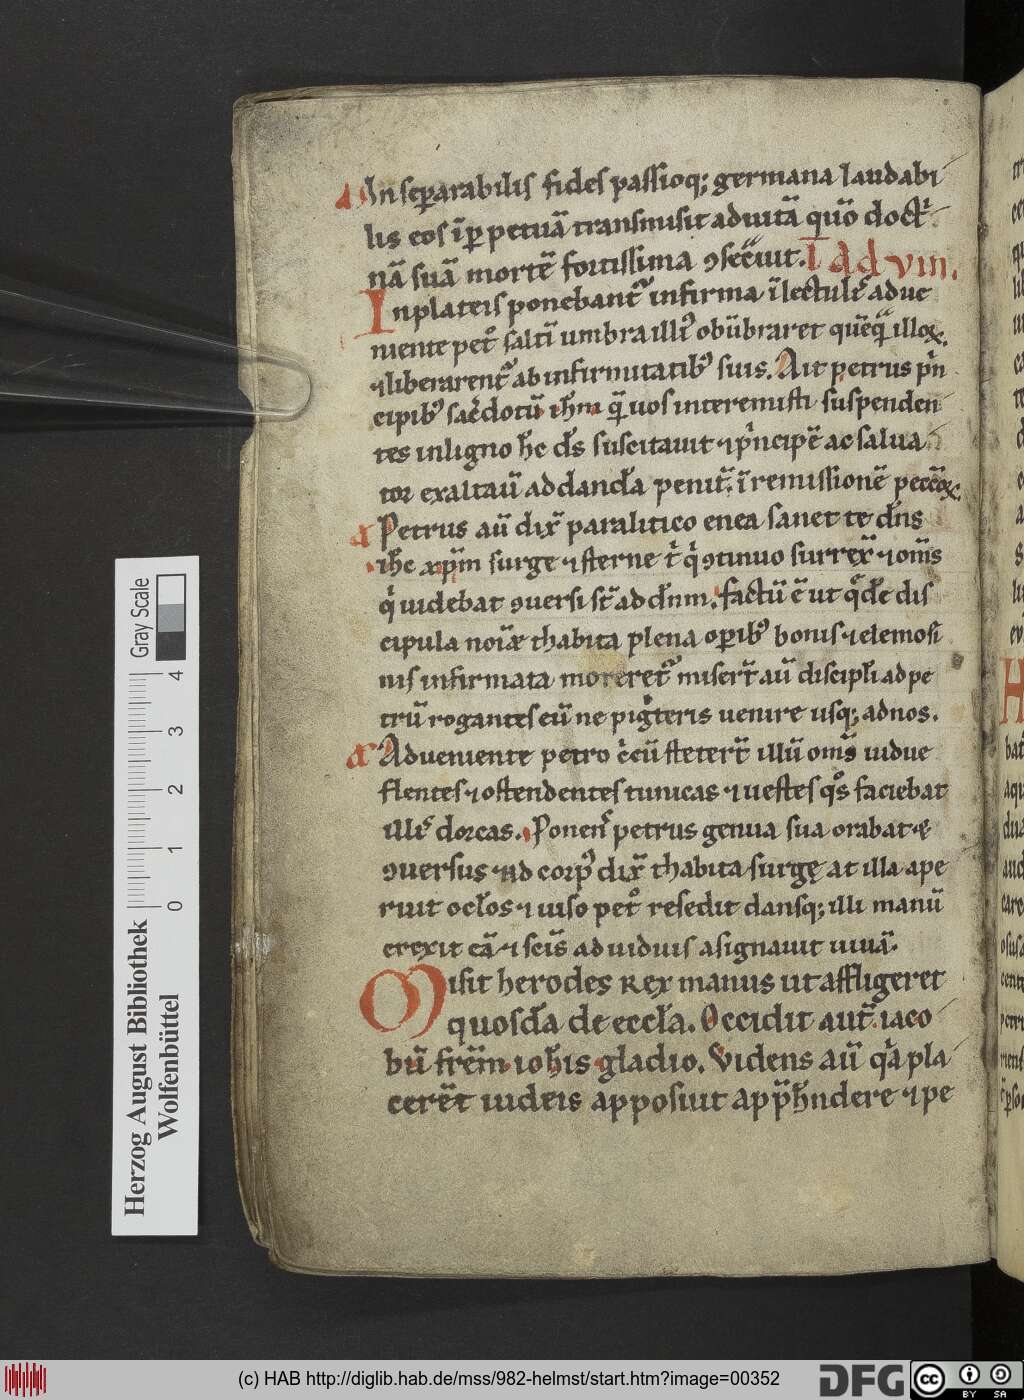 In seꝑarabilis fides passioq; germana laudabi
lis eos ī ꝑpetuā transmisit ad uitā quō doct̉
nā suā mortē fortissima ꝯsec̄uit. I ad viii.
In plateis ponebant᷑ infirma ī lectul' adue
niente pet᷑ saltī umbra ill' obūbraret quēq̄ illoꝝ.
⁊ liberarent᷑ ab infirmitatib᷒ suis. Ait petrus pn̄
cipib᷒ sac̄dotū ih̄m q̄ uos interemisti suspenden
tes in ligno h̄c d̄s suscitauit ⁊ pⁱncipē ac salua
tor exaltauˉ ad dandā penit̄. ī remissionē peccoꝝ.
Petrus aū dix̄ paralitico enea sanet te dn̄s
ih̄c xp̄m surge ⁊ sterne t̉ qⁱ ꝯtinuo surrex̄ ⁊ om̄s
qⁱ uidebat ꝯuersi st̄ ad dn̄m. factū ē ut qͣd̄ dis
cipula noīe thabita plena oꝑib᷒ bonis ⁊ elemosi
nis infirmata moreret᷑ misert̄ aū discipl̄i ad pe
trū rogantes eū ne pigͥteris uenire usq; ad nos.
Adueniente petro c̉cū stetert̄ illū om̄s uidue
flentes ⁊ ostendentes tunicas ⁊ uestes qͦs faciebat
ill' dorcas. Ponen' petrus genua sua orabat ⁊
ꝯuersus ad corp᷒ dix̄ thabita surge at illa ape
ruit ocl̄os ⁊ uiso pet᷑ resedit dansq; illi manū
erexit eā ⁊ sc̄is ad uiduis asignauit uiuā.
Misit herodes rex manus ut affligeret
quosdā de eccl̄a. Occidit aut̄ iaco
bū frēm ioh̄is gladio. Videns aū qͣ pla
ceret iudeis apposiut app̄hn̄dere ⁊ pe
Gray Scale
0 1 2 3 4
Herzog August Bibliothek
Wolfenbüttel
(c) HAB http://diglib.hab.de/mss/982-helmst/start.htm?image=00352
DFG
cc BY SA